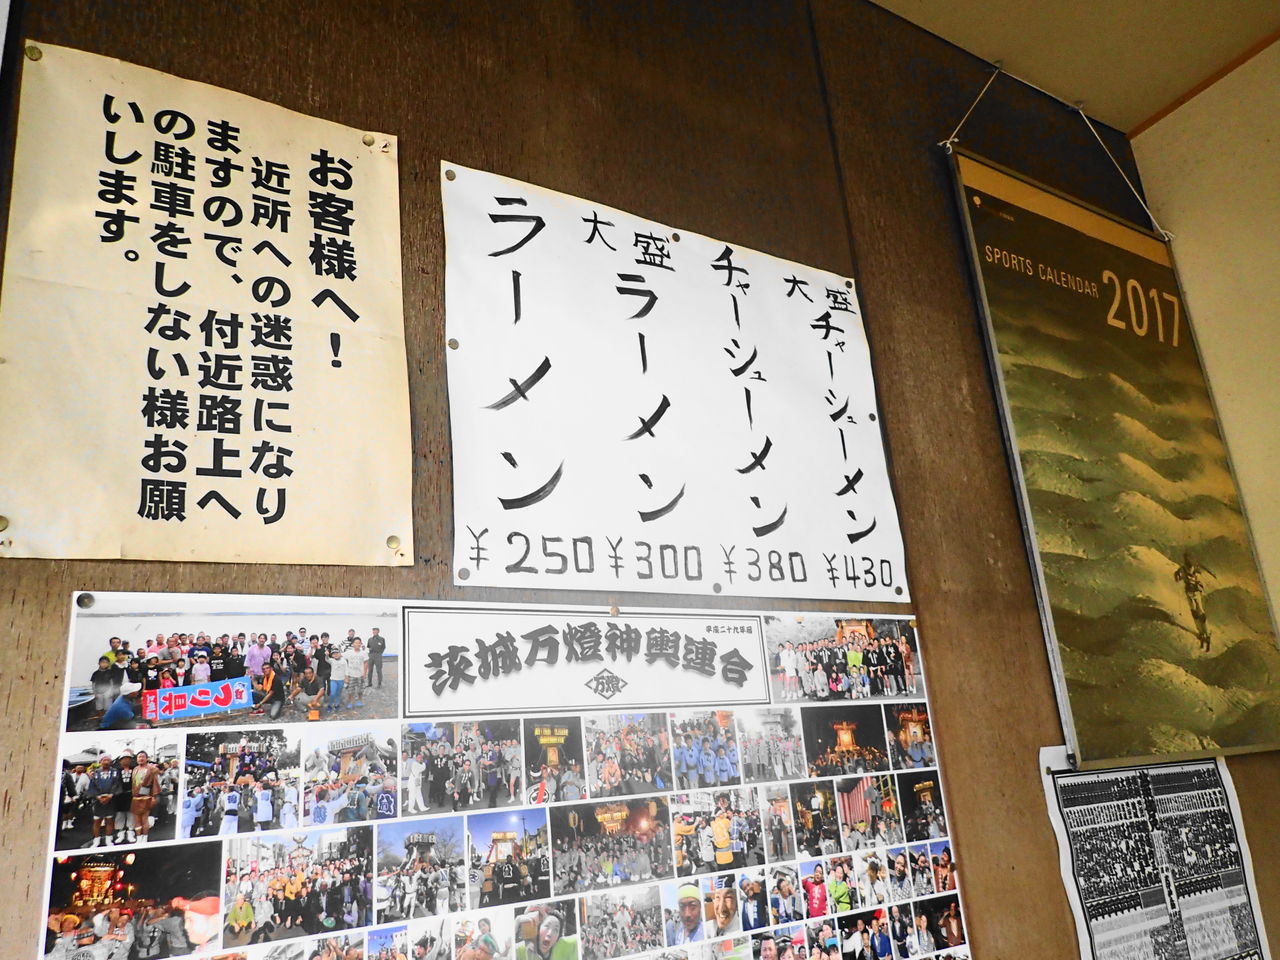 お客様へ！
近所への迷惑になり
ますので、付近路上へ
の駐車をしない様お願
いします。
ラーメン
¥250
大盛ラーメン
¥300
チャーシューメン
¥380
大盛チャーシューメン
¥430
茨城万燈神輿連合
平成二十九年度
万燈
つり具
SPORTS CALENDAR 2017